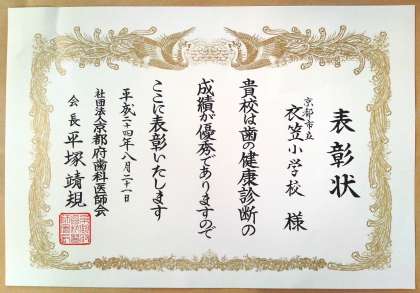 表彰状
京都市立
衣笠小学校 様
貴校は歯の健康診断の
成績が優秀でありますので
ここに表彰いたします
平成二四年八月二十一日
社団法人京都府歯科医師会
会長 平塚靖規